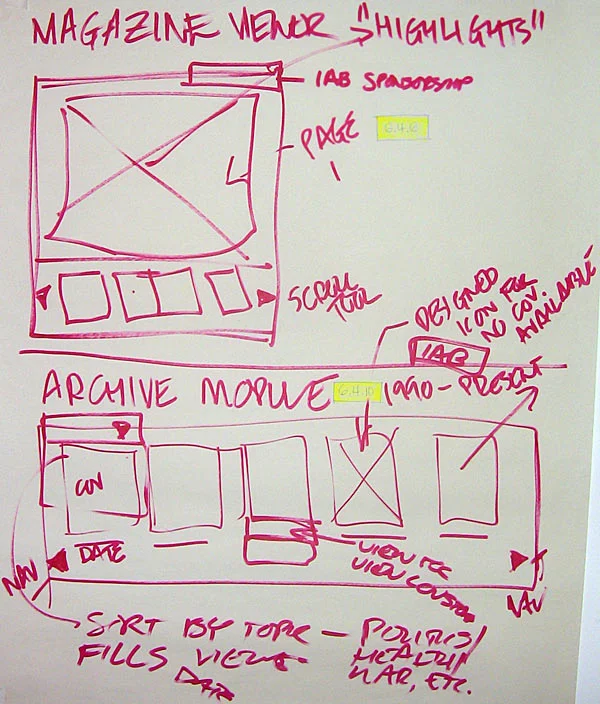 MAGAZINE VIEWR "HIGHLIGHTS"
IAB SPONSORSHIP
PAGE 6.4.8
SCROLL
TOOL
DESIGNED
ICON FOR
NO COV.
AVAILABLE
IAB
ARCHIVE MODULE 6.4.10 1990 - PRESENT
COV
DATE
NAV
VIEW
VIEW
NAV
SORT BY TOPIC - POLITICS/
FILLS VIEWR HEALTH/
DATE WAR, ETC.